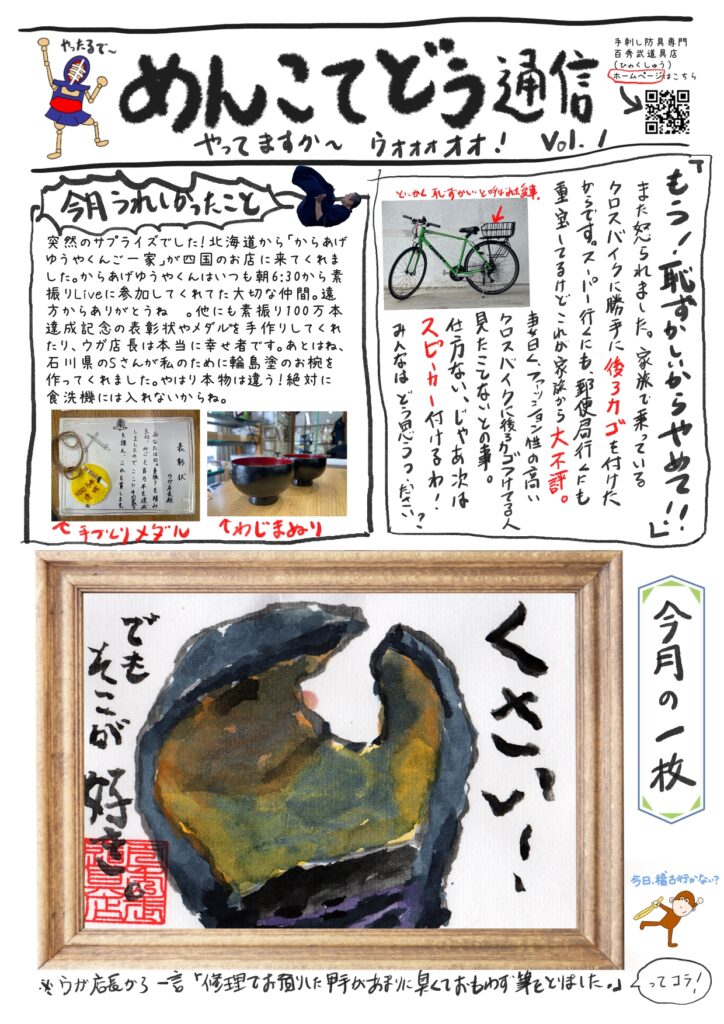 やったるで～
めんこてどう通信
やってますか～ ウォォォオオ! Vol.1
手刺し防具専門
百秀武道具店
(ひゃくしゅう)
ホームページはこちら
今月うれしかったこと
突然のサプライズでした!北海道から「からあげ
ゆうやくんご一家」が四国のお店に来てくれま
した。からあげゆうやくんはいつも朝6:30から素
振りLiveに参加してくれてた大切な仲間。遠
方からありがとうね 。他にも素振り100万本
達成記念の表彰状やメダルを手作りしてくれ
たり、ウガ店長は本当に幸せ者です。あとはね、
石川県のSさんが私のために輪島塗のお椀を
作ってくれました。やはり本物は違う!絶対に
食洗機には入れないからね。
表彰状
↑手づくりメダル
↑わじまぬり
「もう!恥ずかしいからやめて!!」
また怒られました。家族で乗っている
クロスバイクに勝手に後ろカゴを付けた
からです。スーパー行くにも、郵便局行くにも
重宝してるけどこれが家族から大不評。
妻曰く、ファッション性の高い
クロスバイクに後ろカゴつけてる人
見たことないとの事。
仕方ない、じゃあ次は
スピーカー付けるわ!
みんなはどう思うっ、ください?
今月の一枚
くさい!
でも
そこが
好き。
今日、稽古行かない?
※ウガ店長から一言「修理でお預りした甲手があまりに臭くておもわず筆をとりました。」
ってコラ!